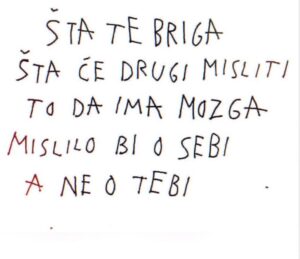 ŠTA TE BRIGA
ŠTA ĆE DRUGI MISLITI
TO DA IMA MOZGA
MISLILO BI O SEBI
A NE O TEBI